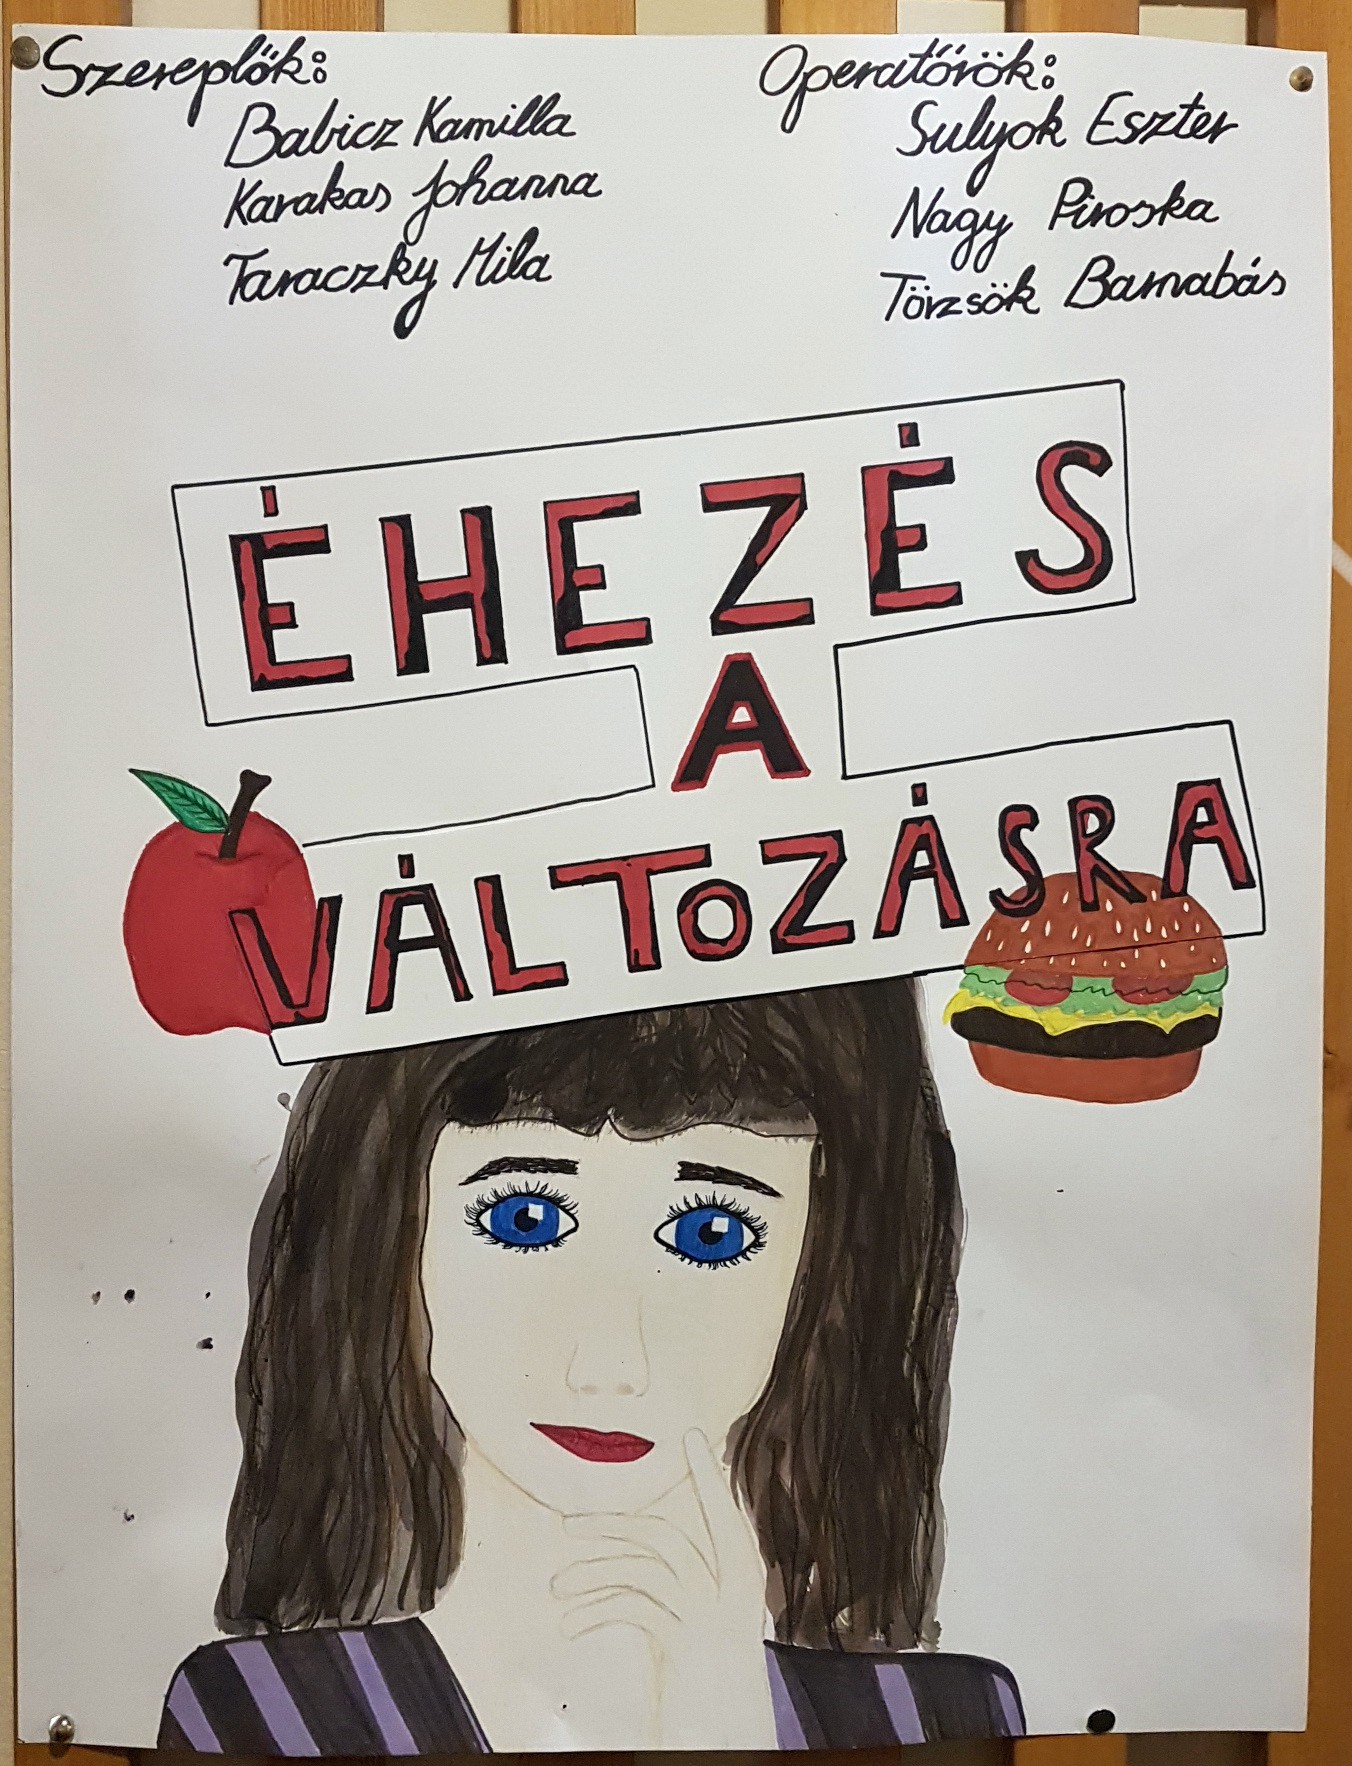 Szereplők:
Babicz Kamilla
Karakas Johanna
Taraczky Mila
Operatőrök:
Sulyok Eszter
Nagy Piroska
Törzsök Barnabás
ÉHEZÉS
A
VÁLTOZÁSRA